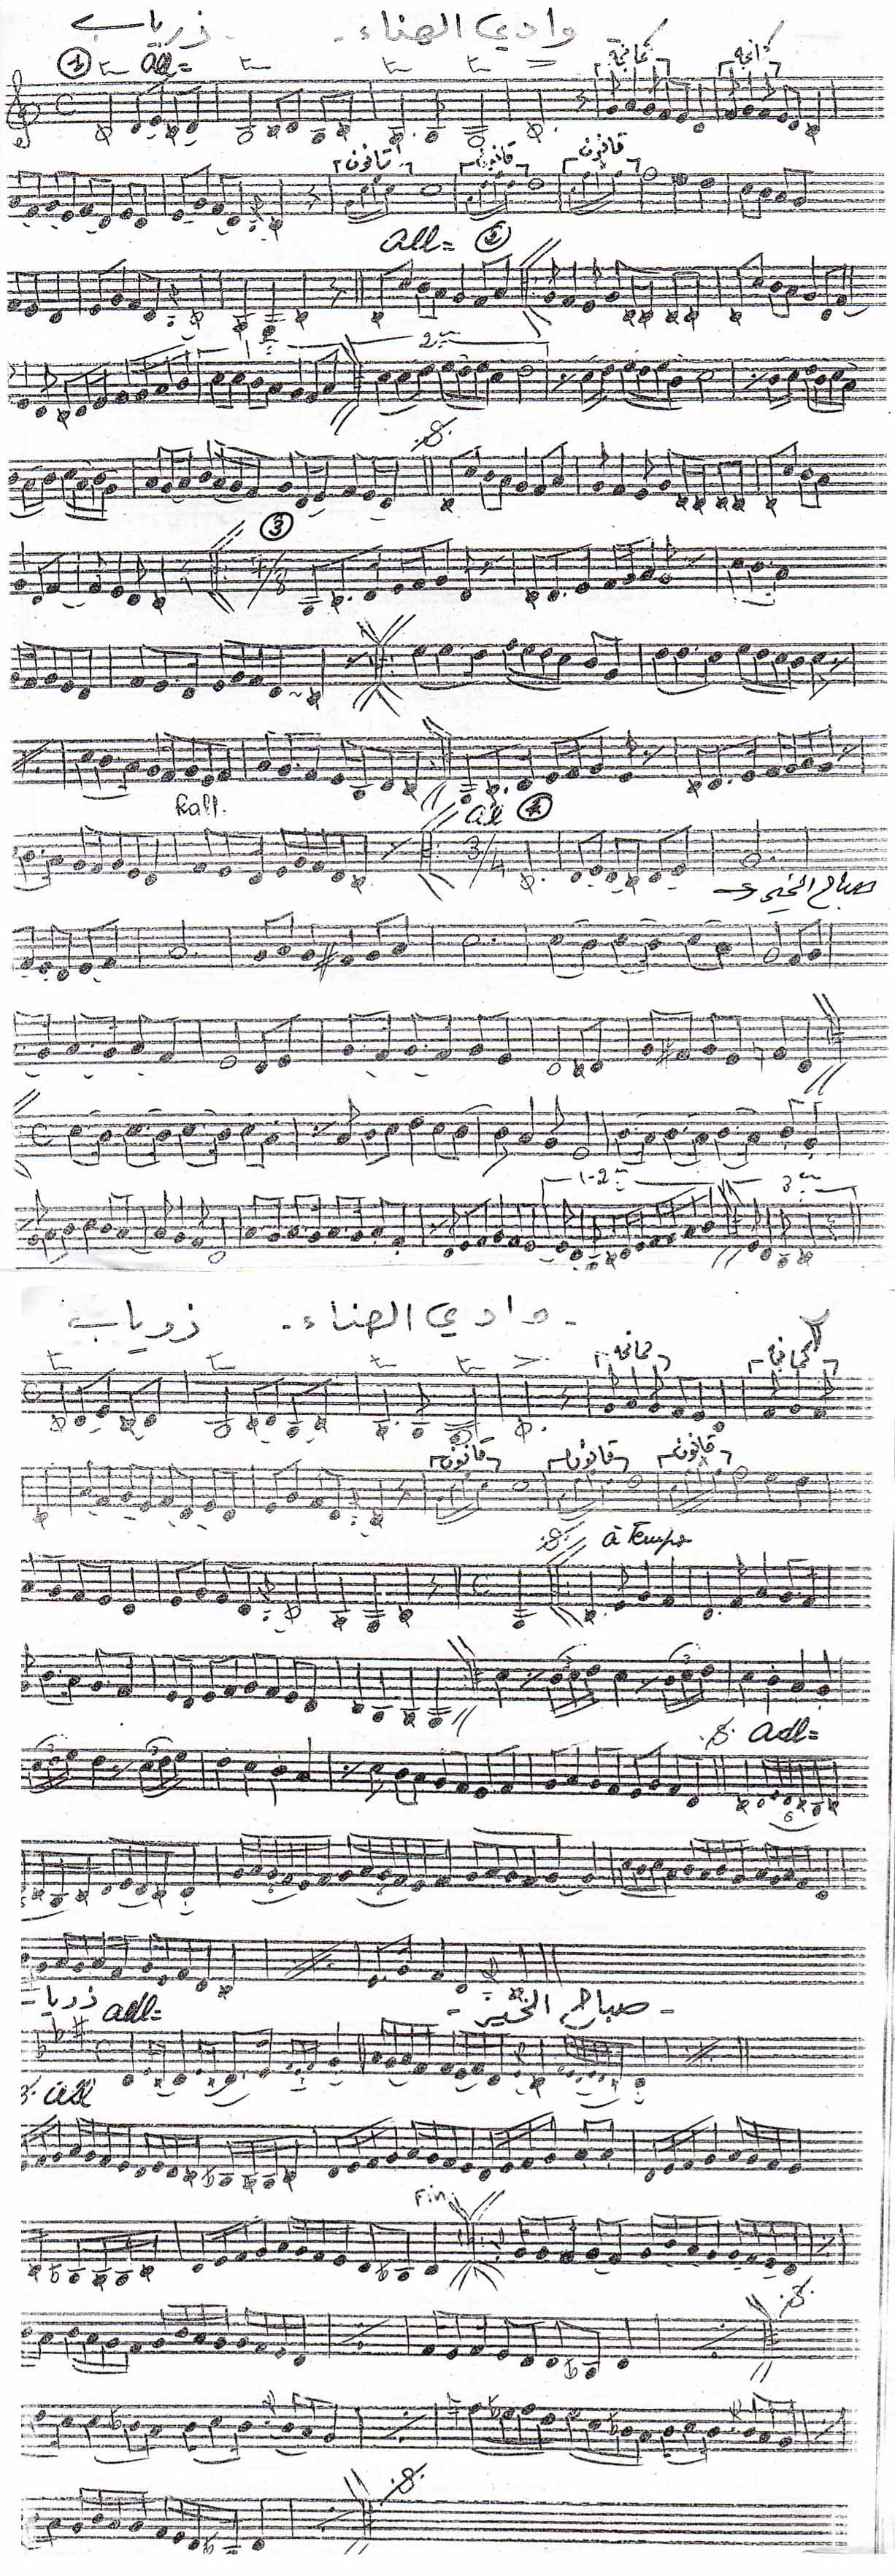 وادي الهناء - زرياب
1 All= كمانجة كمانجة
قانون قانون قانون
All= 2
1 2
3
7/8
Rall. All 4
3/4
صباح الخير
1-2 3
- وادي الهناء - زرياب
كمانجة كمانجة
قانون قانون قانون
à Tempo
3 3
3 3 adl=
6
- صباح الخير - زريا
adl=
all
Fin